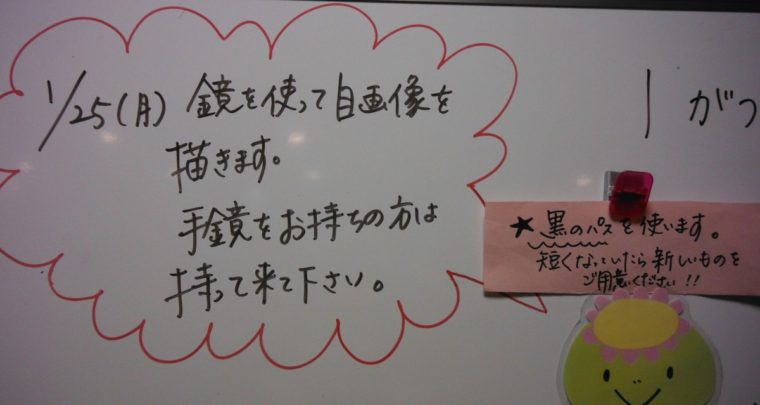 1/25(月) 鏡を使って自画像を
描きます。
手鏡をお持ちの方は
持って来て下さい。
1 がつ
★黒のパスを使います。
短くなっていたら新しいものを
ご用意ください!!